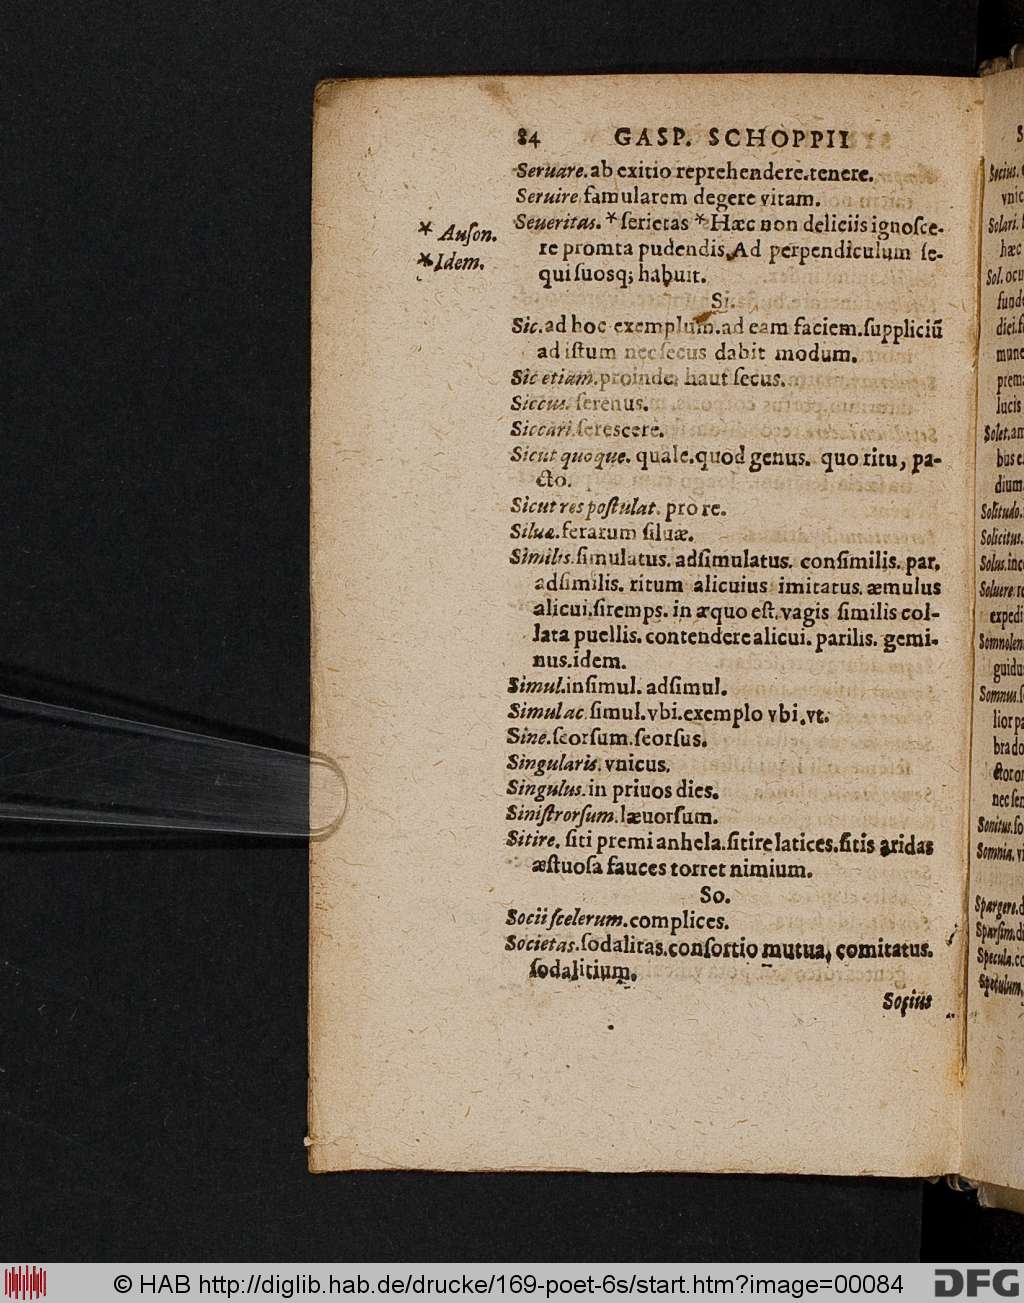 84 GASP. SCHOPPII
Seruare. ab exitio reprehendere. tenere.
Seruire famularem degere vitam.
Seueritas. * ſerietas * Hæc non deliciis ignoſce-
* Auſon.
re promta pudendis. Ad perpendiculum ſe-
* Idem.
qui ſuosq; habuit.
Si.
Sic. ad hoc exemplum. ad eam faciem. ſuppliciū
ad iſtum nec ſecus dabit modum.
Sic etiam. proinde. haut ſecus.
Siccus. ſerenus.
Siccari. ſereſcere.
Sicut quoque. quale. quod genus. quo ritu, pa-
cto.
Sicut res poſtulat. pro re.
Siluæ. ferarum ſiluæ.
Similis. ſimulatus. adſimulatus. conſimilis. par.
adſimilis. ritum alicuius imitatus. æmulus
alicui. ſiremps. in æquo eſt. vagis ſimilis col-
lata puellis. contendere alicui. parilis. gemi-
nus. idem.
Simul. inſimul. adſimul.
Simul ac ſimul. vbi. exemplo vbi. vt.
Sine. ſeorſum. ſeorſus.
Singularis. vnicus.
Singulus. in priuos dies.
Siniſtrorſum. læuorſum.
Sitire. ſiti premi anhela. ſitire latices. ſitis aridas
æſtuoſa fauces torret nimium.
So.
Socii ſcelerum. complices.
Societas. ſodalitas. conſortio mutua, comitatus.
ſodalitium.
Socius
Socius.
vnic
Solari.
hæc
Sol. ocu
funde
diei. ſ
mune
prema
lucis
Solet. am
bus e
dium
Solitudo.
Solicitus.
Solus. inc
Soluere. re
expedi
Somnolen
guidu
Somnus. ſ
lior pa
bra do
ctor or
nec ſen
Sonitus. ſo
Somnia. vi
Spargere. d
Sparſim. di
Specula. co
Speculum.
© HAB http://diglib.hab.de/drucke/169-poet-6s/start.htm?image=00084
DFG